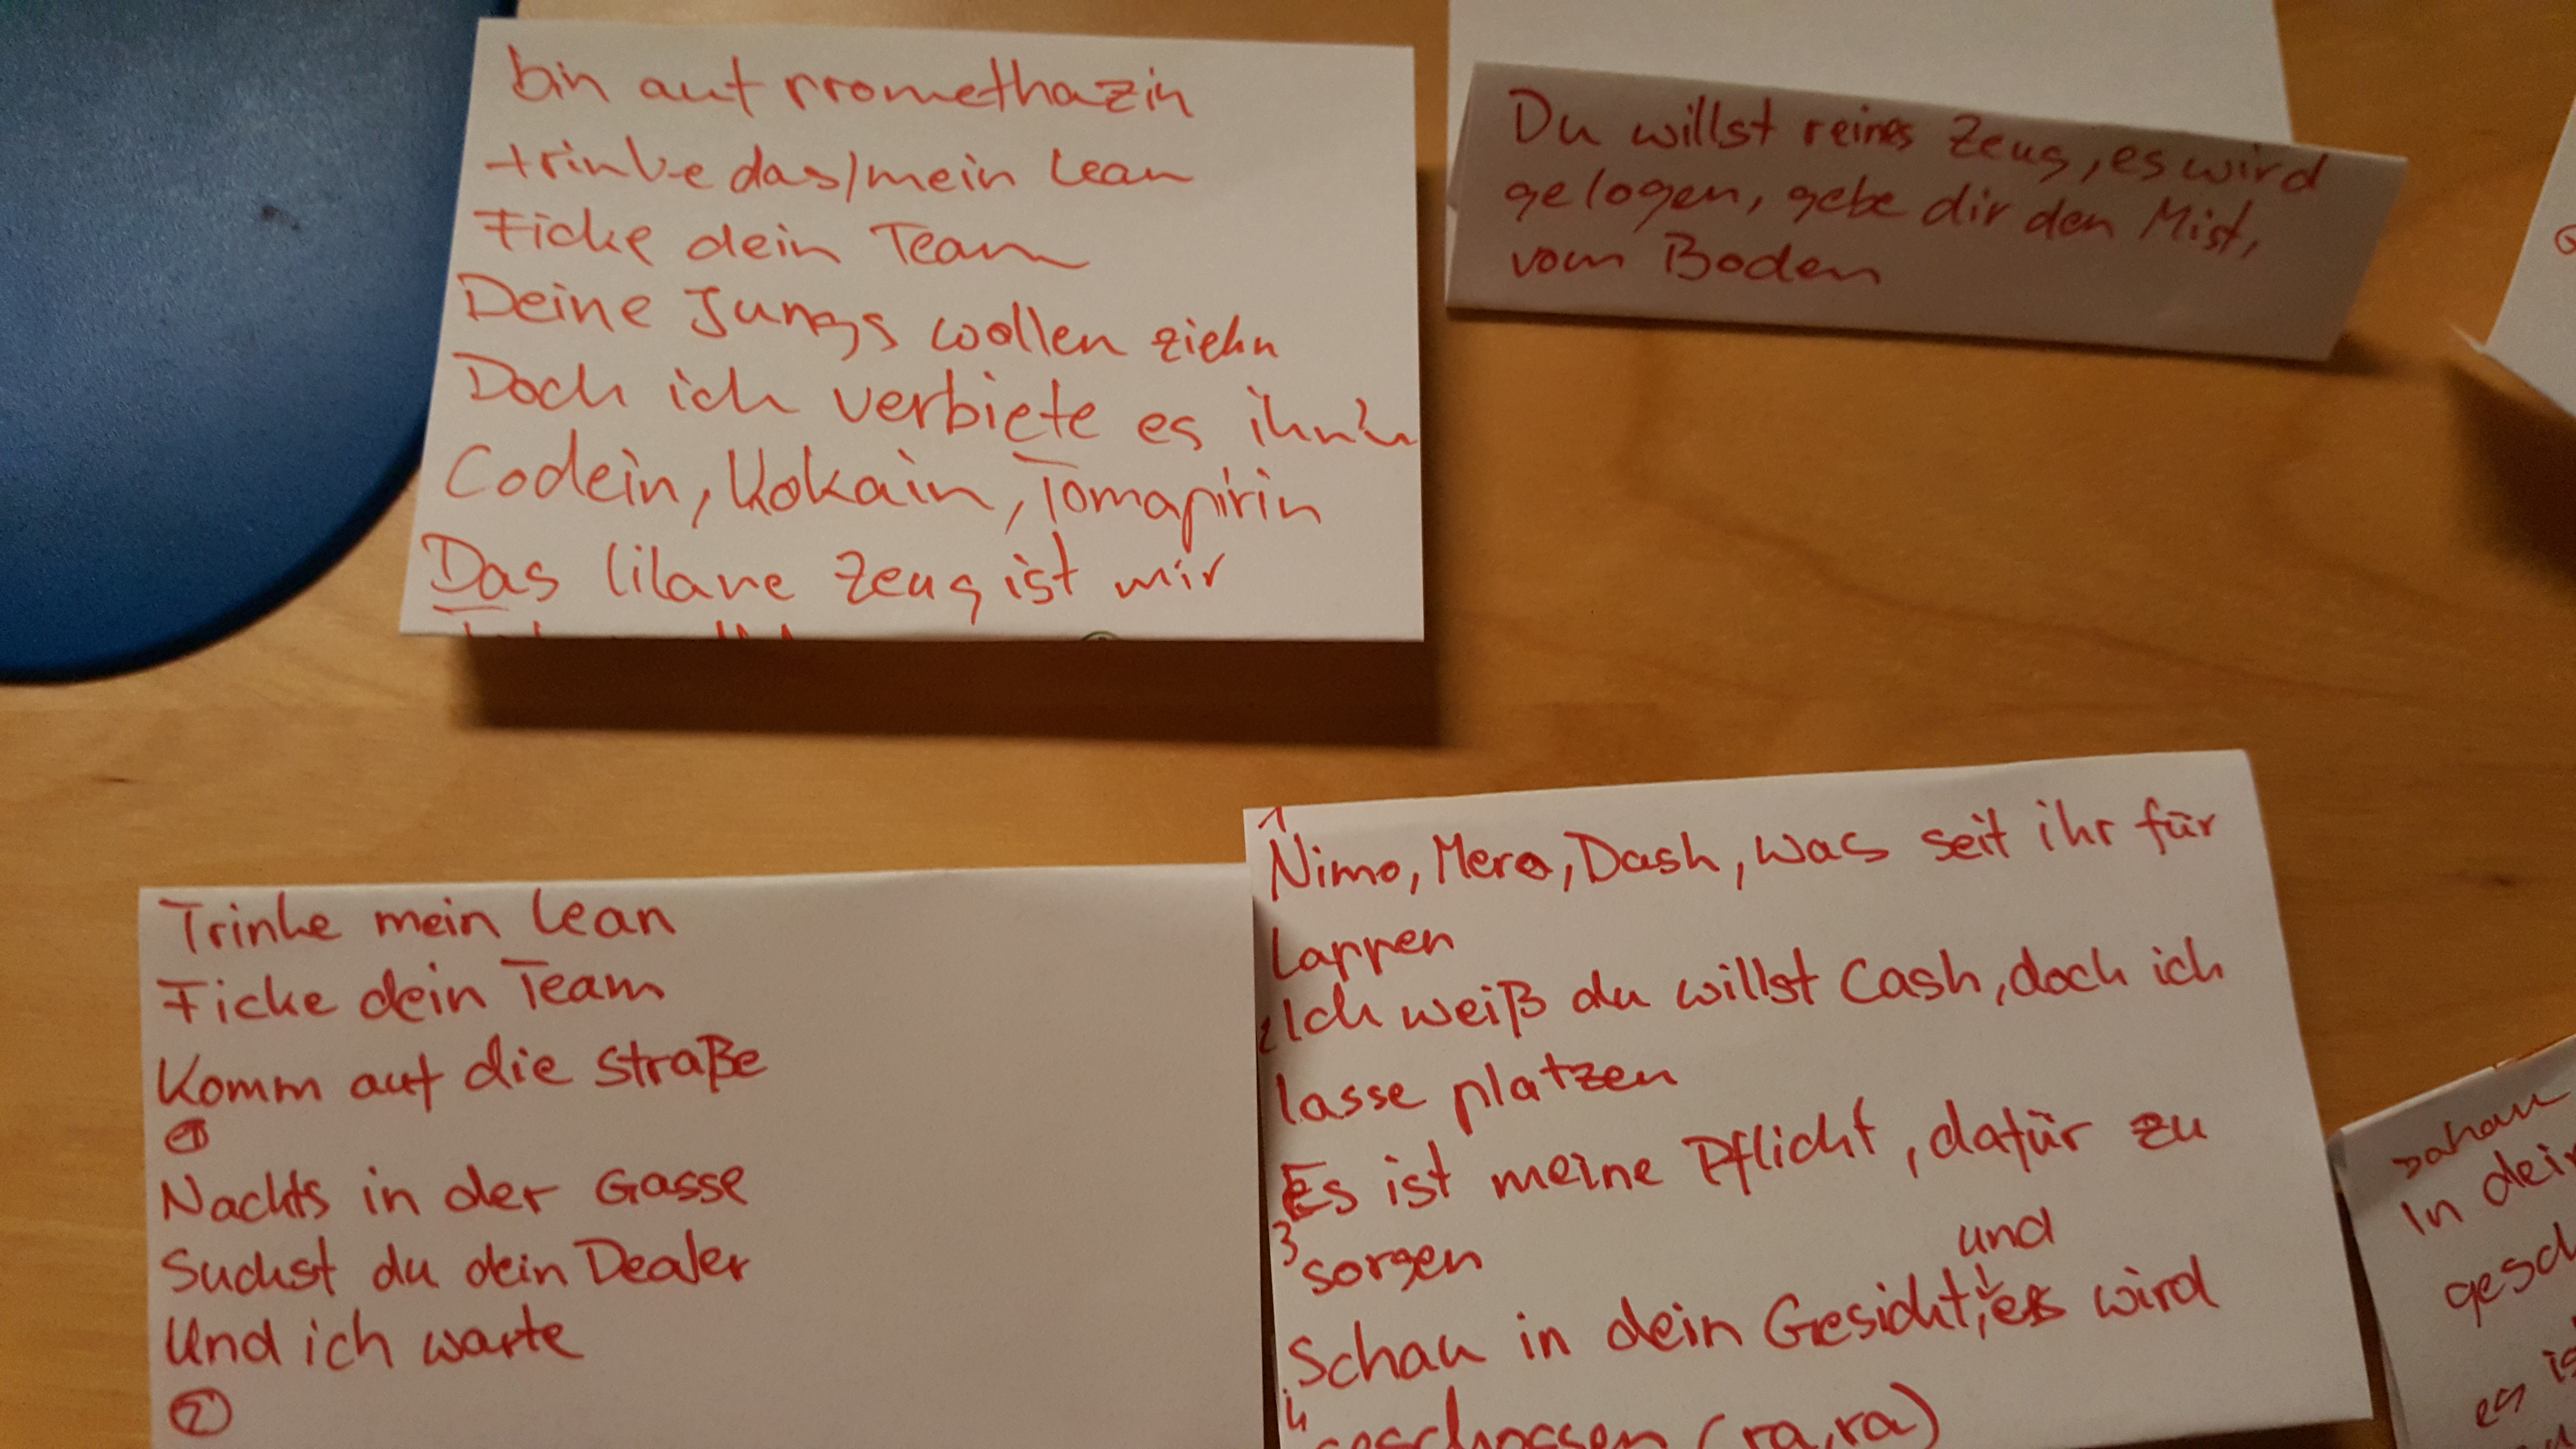 bin auf Promethazin
trinke das/mein Lean
Ficke dein Team
Deine Jungs wollen ziehn
Doch ich verbiete es ihn'n
Codein, Kokain, Tomapirin
Das lilane Zeug ist mir
Du willst reines Zeug, es wird
gelogen, gebe dir den Mist,
vom Boden
Trinke mein Lean
Ficke dein Team
Komm auf die Straße
1
Nachts in der Gasse
Suchst du dein Dealer
Und ich warte
2
1
Nimo, Mero, Dash, was seit ihr für
Lappen
2 Ich weiß du willst Cash, doch ich
lasse platzen
Es ist meine Pflicht, dafür zu
3 sorgen
und
Schau in dein Gesicht, es wird
4
geschossen (ra, ra)
schau
In dein
gesch
es is